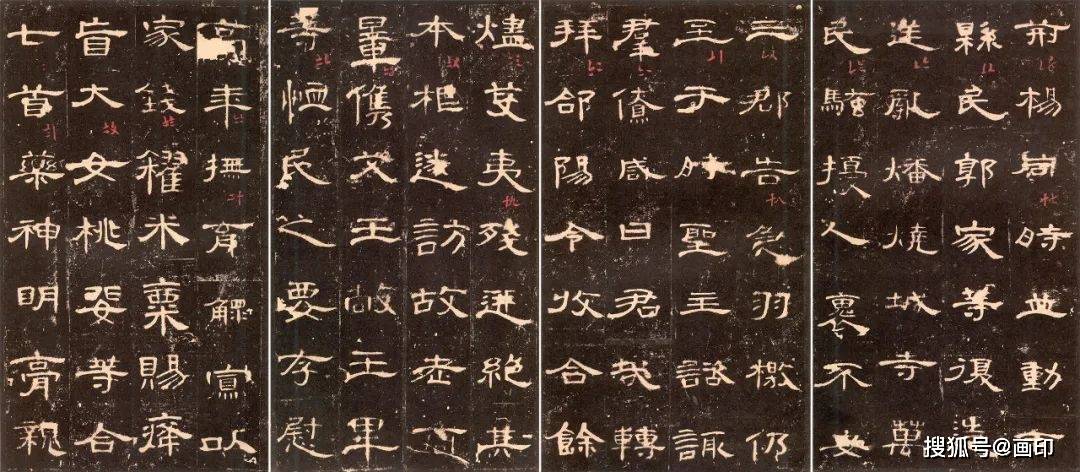 荊楊同時並動而
縣民郭家等復造
逆亂燔燒城寺萬
民騷擾人裹不安
三郡告急羽檄仍
至于時聖主諮諏
羣僚咸曰君哉轉
拜郃陽令收合餘
燼芟夷殘迸絕其
本根遂訪故老商
量儁艾王敞王畢
等恤民之要存慰
高年撫育鰥寡以
家錢糴米粟賜癃
盲大女桃婓等合
七首藥神明膏親
搜狐号@画印